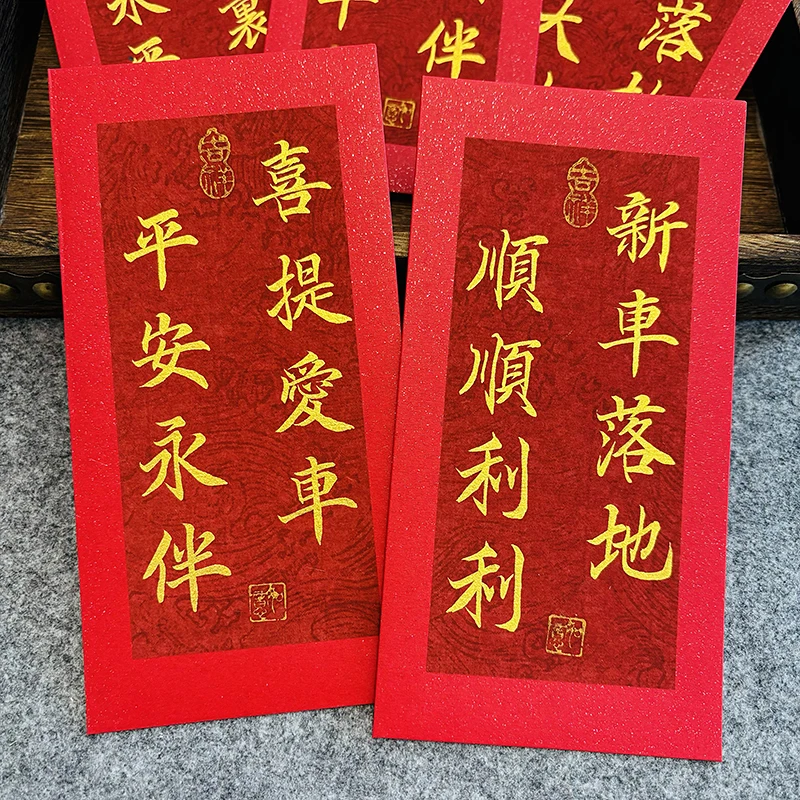 喜提愛車
平安永伴
吉祥
新車落地
順順利利
吉祥
永平
裏
平
伴
落